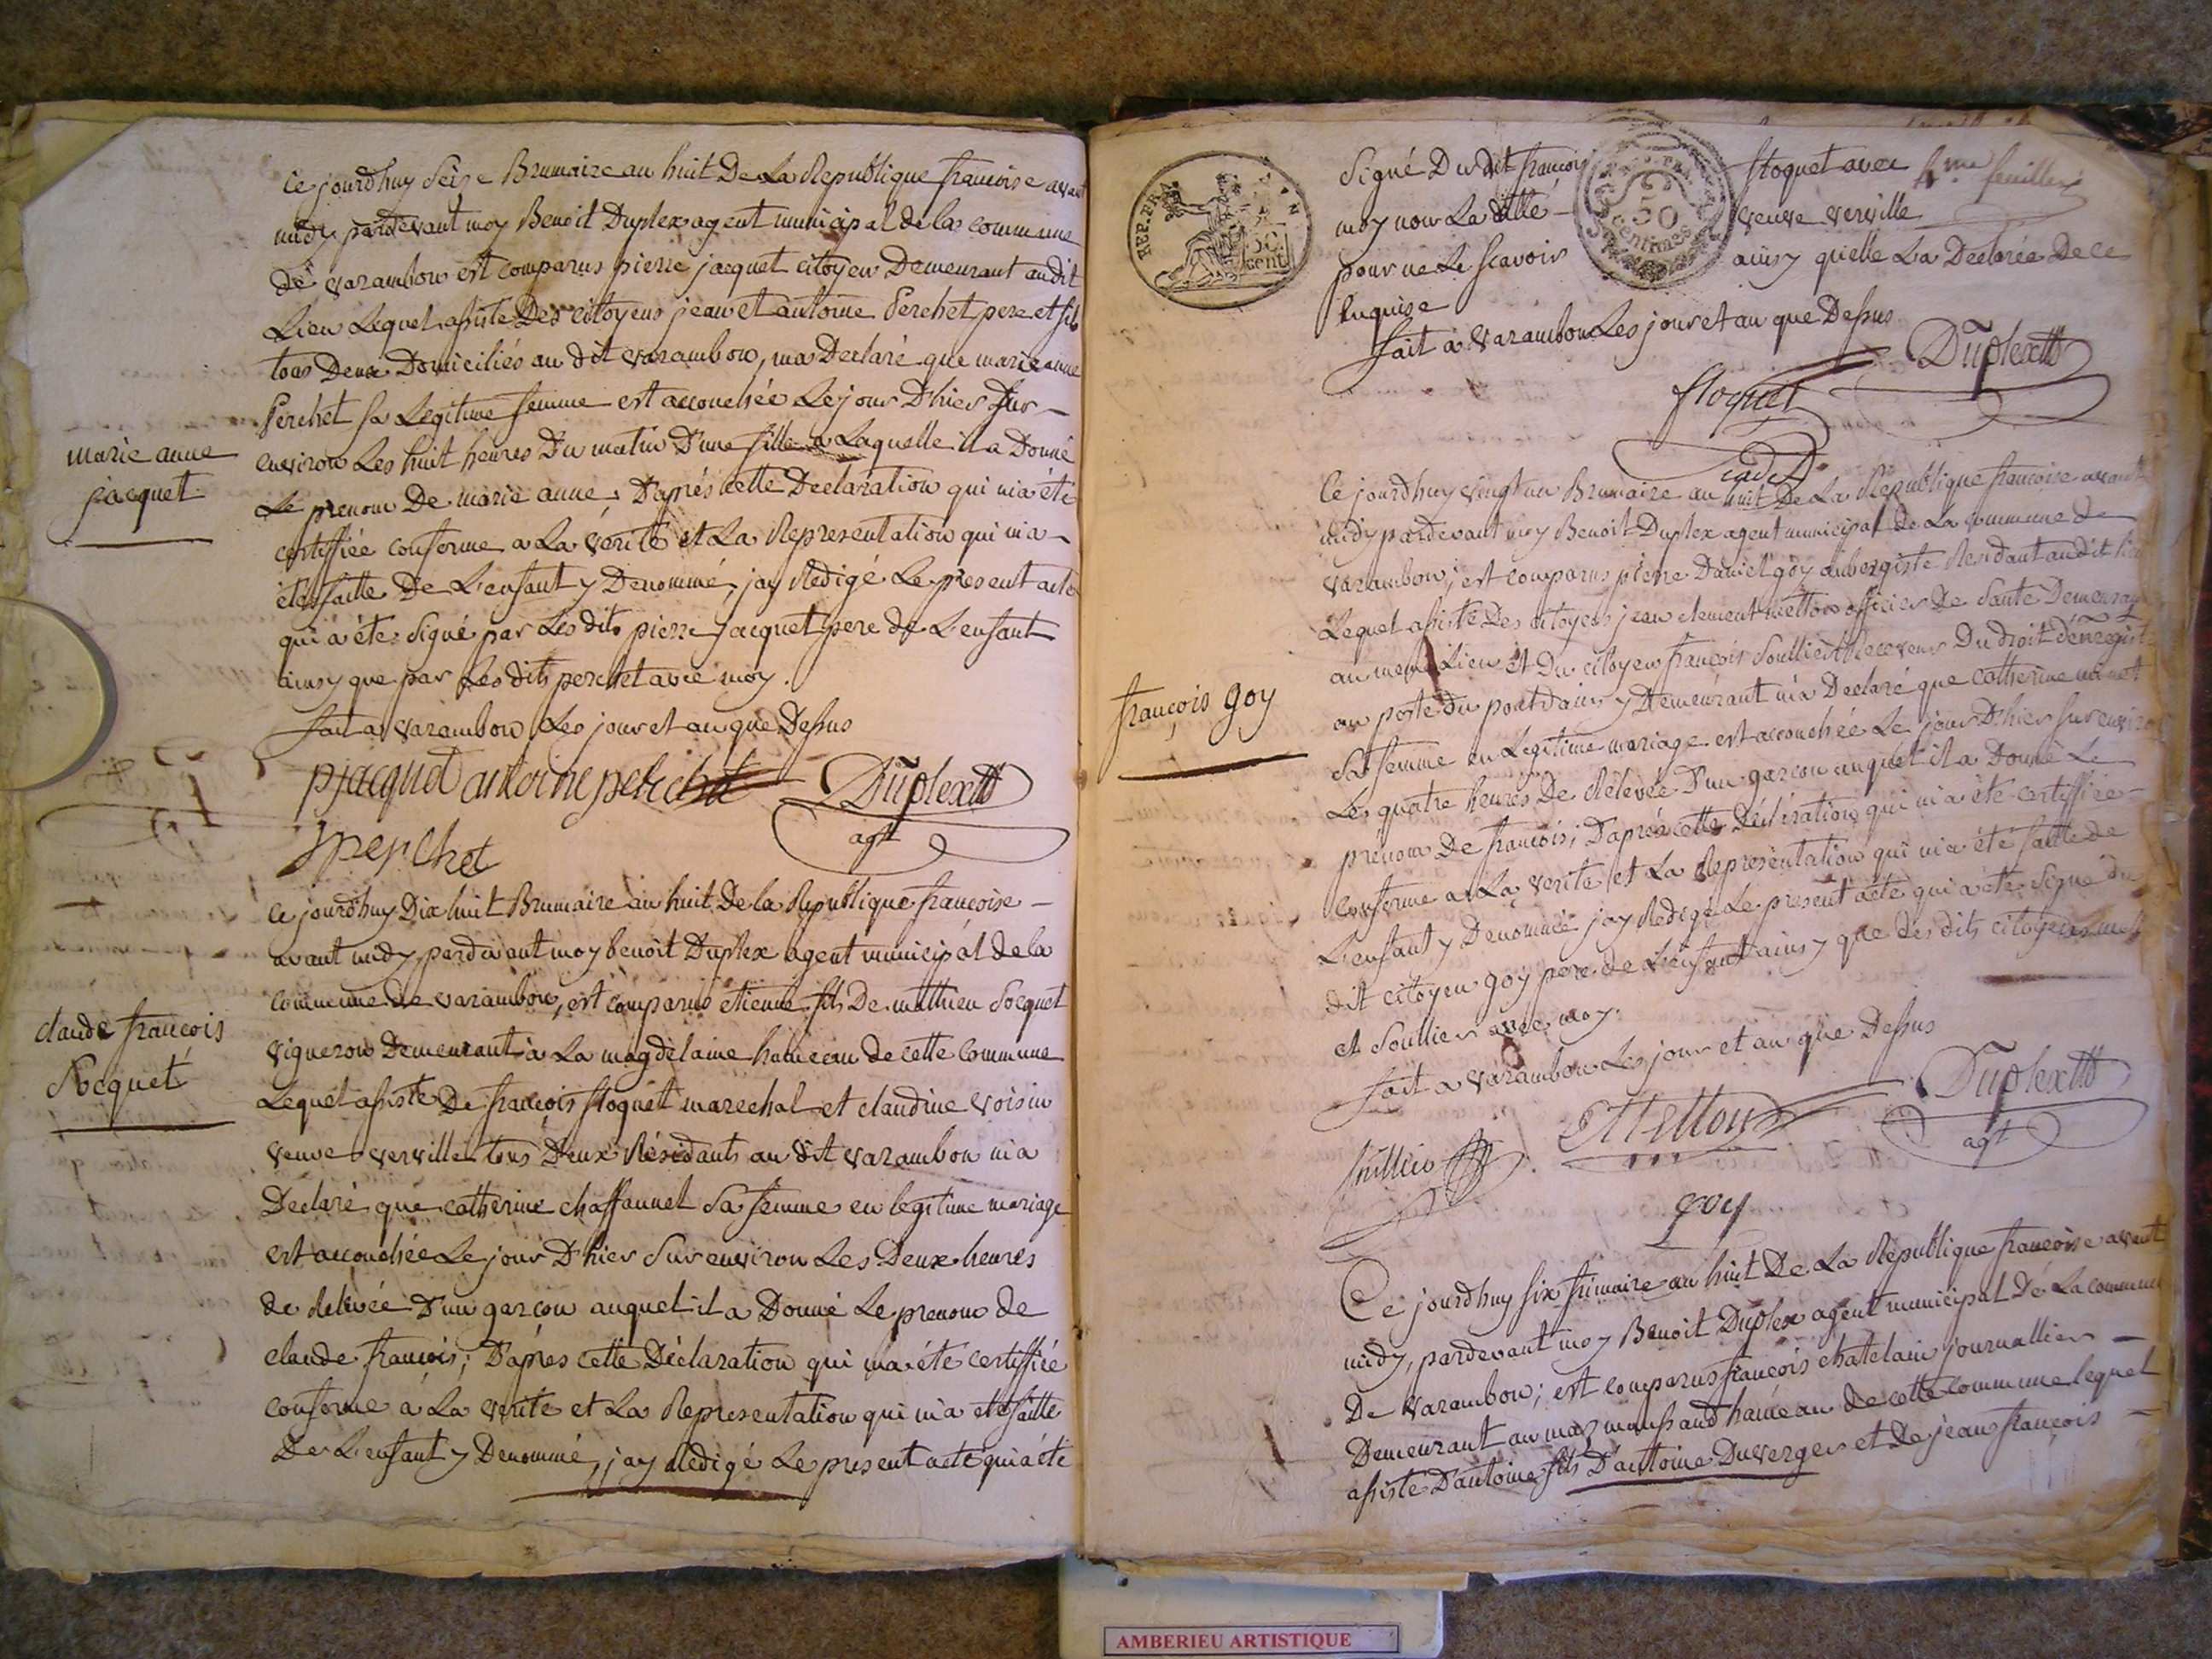 Ce jourdhuy Seize Brumaire an huit De La Republique francoise avant
midy pardevant moy Benoit Duplex agent municipal de la commune
de varambon est comparus pierre jacquet citoyen Demeurant audit
Lieu Lequel assisté Des citoyens jean et antoine Perchet pere et fils
tous Deux Domiciliés au dit varambon, ma Declaré que marie anne
Perchet sa Legitime femme est accouchée Le jour D'hier sur
environ Les huit heures Du matin D'une fille a Laquelle il a Donné
Le prenom De marie anne, D'aprés cette Declaration qui m'a été
certiffiée conforme a La verité et La Representation qui m'a
été faitte De L'enfant y Denommé, jay Redigé Le present acte
qui a été Signé par Les dits pierre jacquet pere de L'enfant
ainsy que par Les dits perchet avec moy.
fait a varambon Les jour et an que Dessus
marie anne
jacquet
pjacquet antoine perchet Duplex
agt
jperchet
Ce jourdhuy Dix huit Brumaire an huit De la Republique francoise
avant midy pardevant moy benoit Duplex agent municipal de la
commune de varambon, est comparus etienne fils De mathieu Socquet
vigneron Demeurant à La magdelaine hameau de cette commune
Lequel assisté De françois floquet marechal et claudine voisin
veuve verville tous Deux Résidants au dit varambon m'a
Declaré que catherine chaffannel Sa femme en legitime mariage
est accouchée Le jour D'hier Sur environ Les Deux heures
de Relevée D'un garcon auquel il a Donné Le prenom de
claude françois; D'apres cette Déclaration qui m'a été certiffiée
conforme a La verite et La Representation qui m'a été faitte
De L'enfant y Denommé, jay Redigé Le present acte qui a été
claude francois
Socquet
REP. FRA
50
cent
50
Centimes
Signé Du dit francois floquet avec
moy non La ditte veuve verville
pour ne Le Scavoir ainsy quelle La Declarée De ce
Enquise
fait a varambon Les jour et an que Dessus
feuillet
Duplex
floquet
Ce jourdhuy vingt un Brumaire an huit De La Republique francoise avant
midy pardevant moy Benoit Duplex agent municipal De La commune de
varambon; est comparus pierre Daniel goy aubergiste Residant audit lieu
Lequel assisté Des citoyens jean clement metton officier De Santé Demeurant
au meme Lieu et Du citoyen francois Soullier Receveur Du droit d'enregist
au poste du pont dain y Demeurant m'a Declaré que catherine
Sa femme en Legitime mariage est accouchée Le jour D'hier Sur environ
Les quatre heures De Relevée D'un garcon auquel il a Donné Le
prenom De francois; D'aprés cette Déclaration qui m'a été certiffiée
conforme a La verite et La Representation qui m'a été faitte de
L'enfant y Denommé jay Redigé Le present acte qui a été Signé du
dit citoyen goy pere de L'enfant ainsy que des dits citoyens
et Soullier avec moy.
fait a varambon Les jour et an que Dessus
françois goy
Soullier Metton Duplex
agt
goy
Ce jourdhuy six frimaire an huit De La Republique francoise avant
midy, pardevant moy Benoit Duplex agent municipal De La commune
De varambon; est comparus francois chatelain journallier
Demeurant au mas hameau de cette commune lequel
assisté D'antoine fils D'antoine Duverger et de jean françois
AMBERIEU ARTISTIQUE